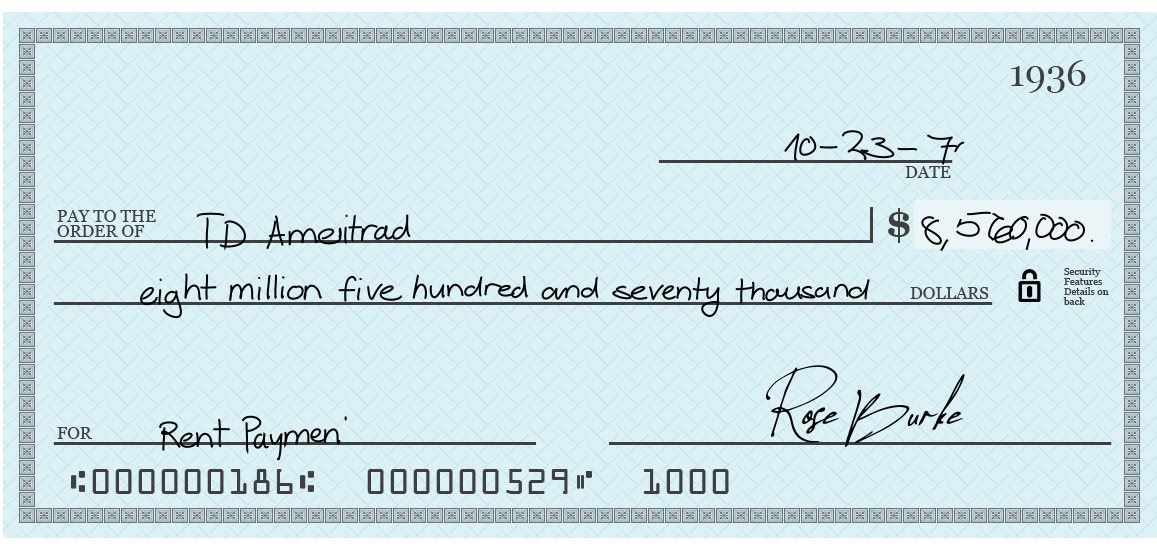 1936
10-23-7
DATE
PAY TO THE
ORDER OF
TD Ameritrad
$ 8,570,000.
eight million five hundred and seventy thousand DOLLARS
Security
Features
Details on
back
FOR Rent Paymen
Rose Burke
⑆000000186⑆ 000000529⑈ 1000